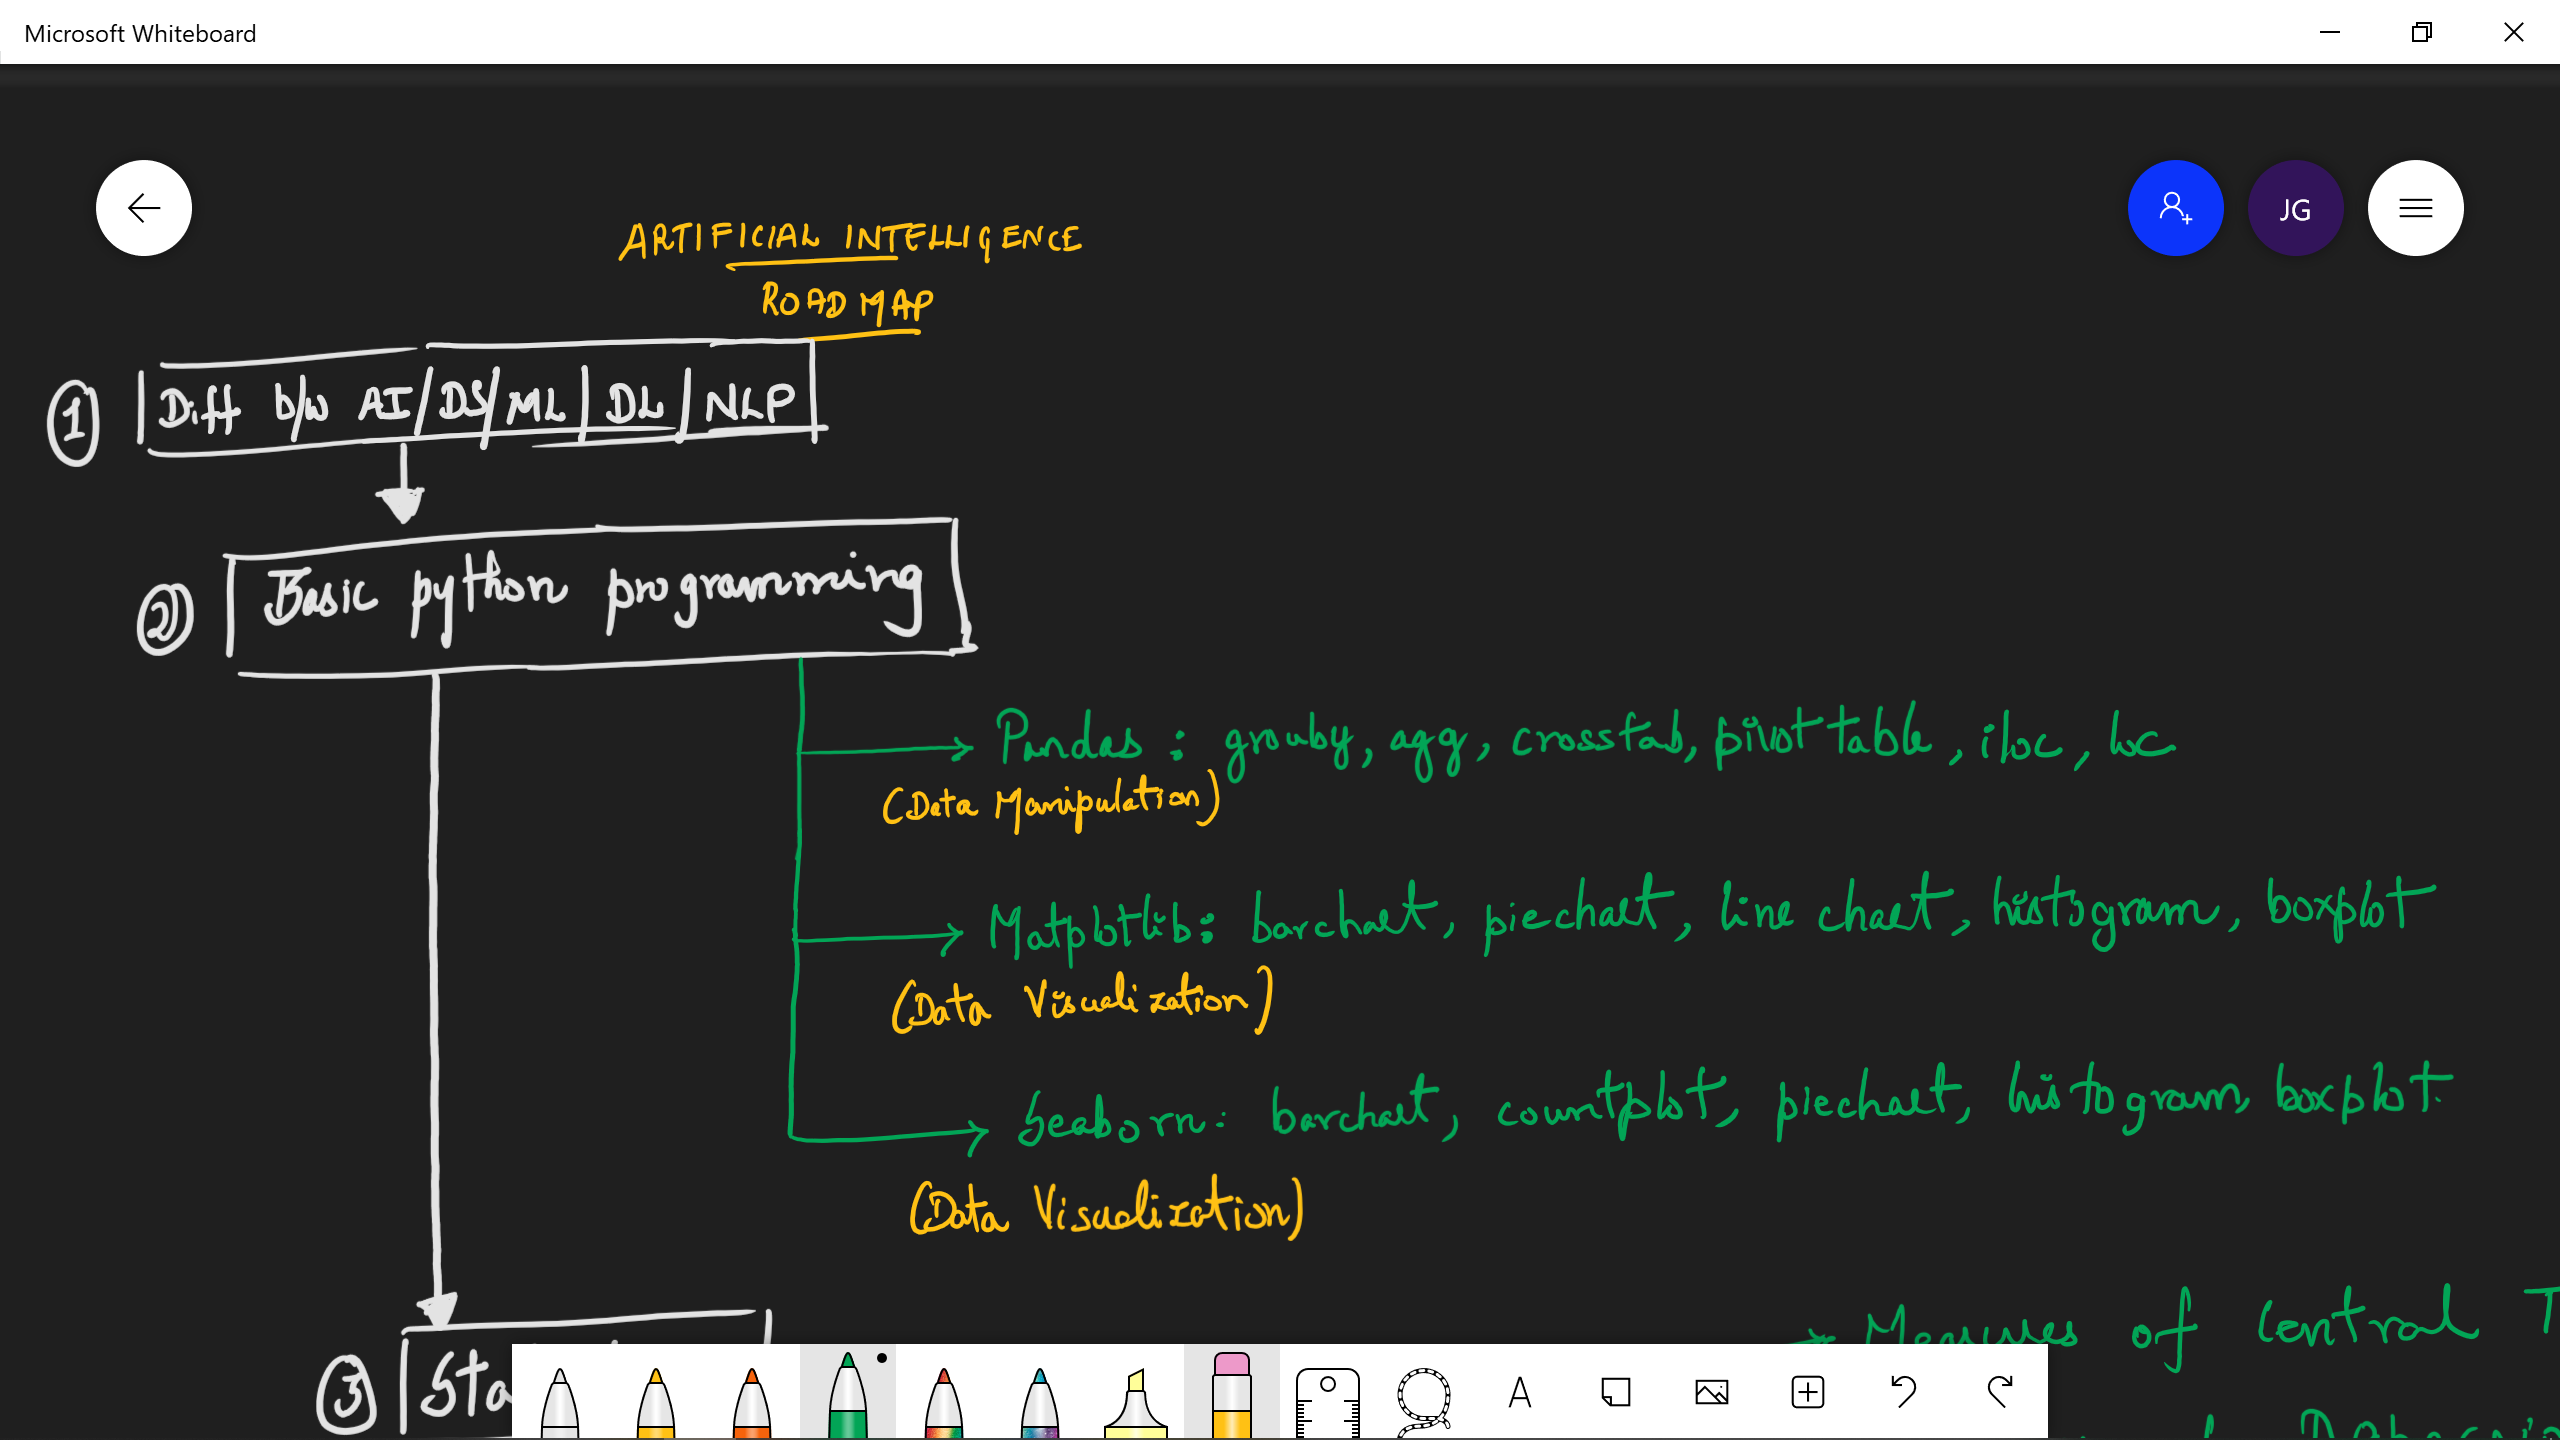 Microsoft Whiteboard
JG
ARTIFICIAL INTELLIGENCE
ROADMAP
1 Diff b/w AI/DS/ML/DL/NLP
2 Basic python programming
Pandas : grouby, agg, crosstab, pivot table, iloc, loc
(Data Manipulation)
Matplotlib: barchart, piechart, line chart, histogram, boxplot
(Data Visualization)
Seaborn: barchart, countplot, piechart, histogram, boxplot.
(Data Visualization)
Measures of Central T
3 Sta